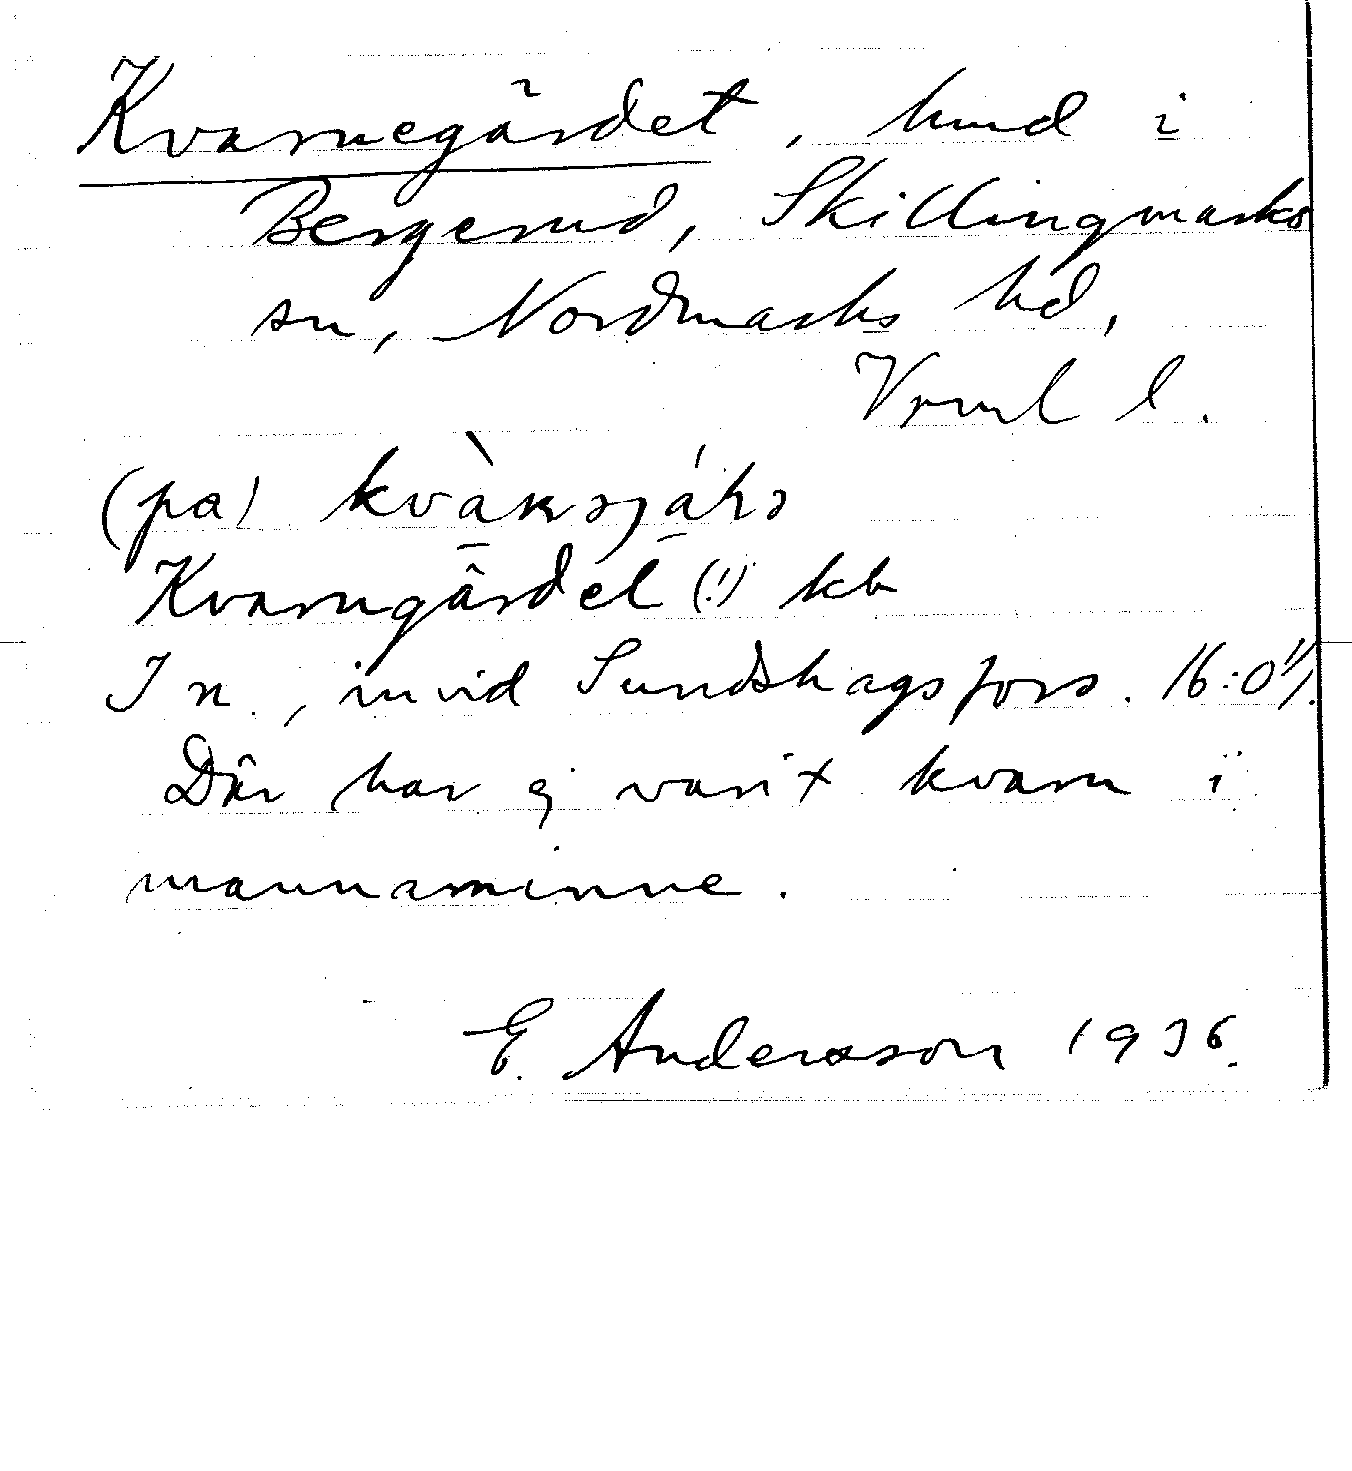 Kvarnegärdet, hmd i
Bergerud, Skillingmarks
sn, Nordmarks hd,
Vrml l.
(på)
Kvarngärdet (!) kb
I n., invid Sundshagsfors. 16:0 1/1.
Där har ej varit kvarn i
mannaminne.
E. Andersson 1936.